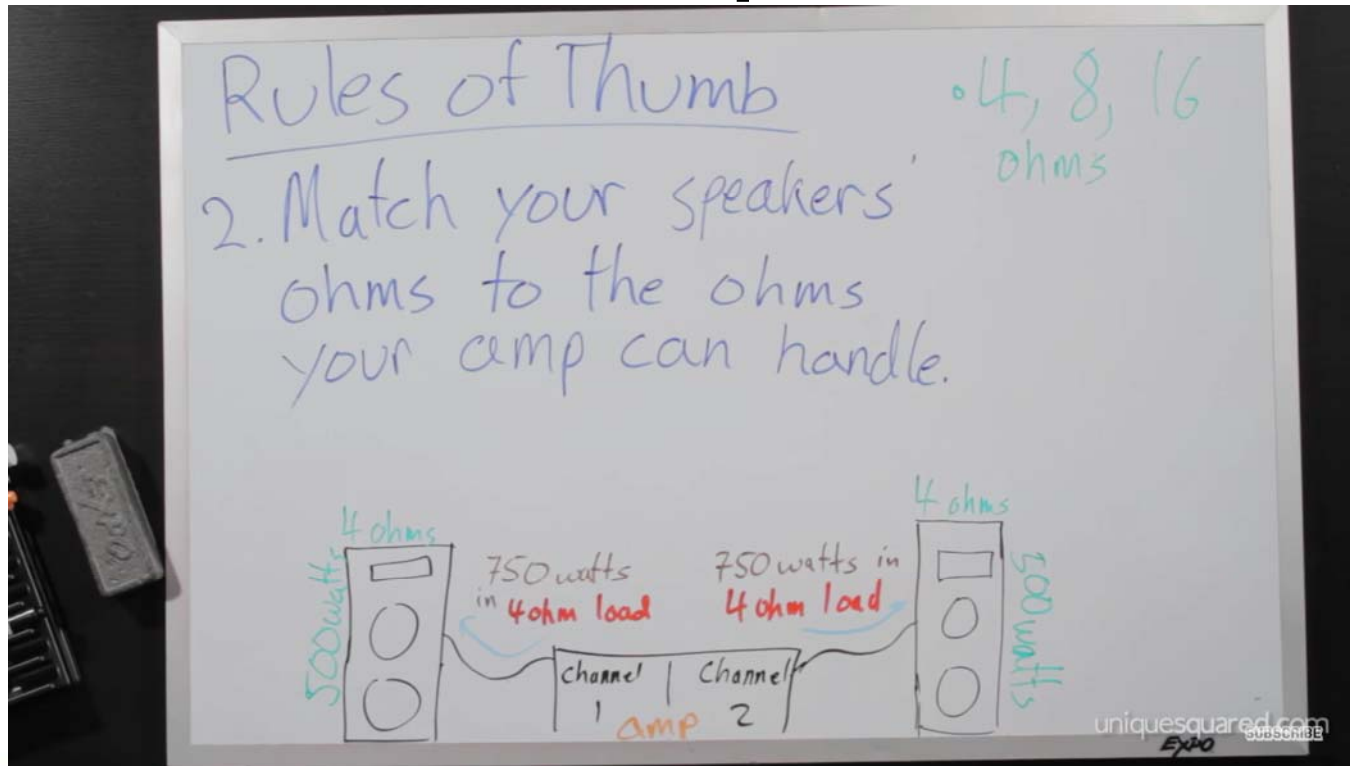 Rules of Thumb
• 4, 8, 16
ohms
2. Match your speakers'
ohms to the ohms
your amp can handle.
4 ohms
500 watts
750 watts
in 4 ohm load
750 watts in
4 ohm load
4 ohms
500 watts
Channel
1
Channel
2
amp
uniquesquared.com
SUBSCRIBE
EXPO
EXPO